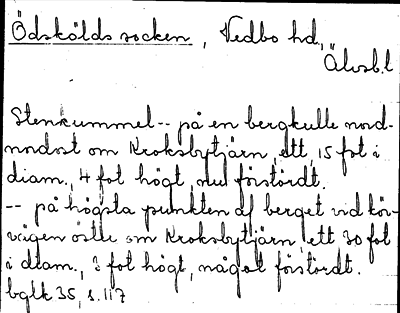 Ödskölds socken, Vedbo hd,
Älvsb.l
Stenkummel -- på en bergkulle nord-
nordost om Kroksbytjärn, ett, 15 fot i
diam., 4 fot högt, nu förstördt.
-- på högsta punkten af berget vid kör-
vägen öster om Kroksbytjärn, ett 30 fot
i diam., 3 fot högt, något förstördt.
bglk 35, s. 117